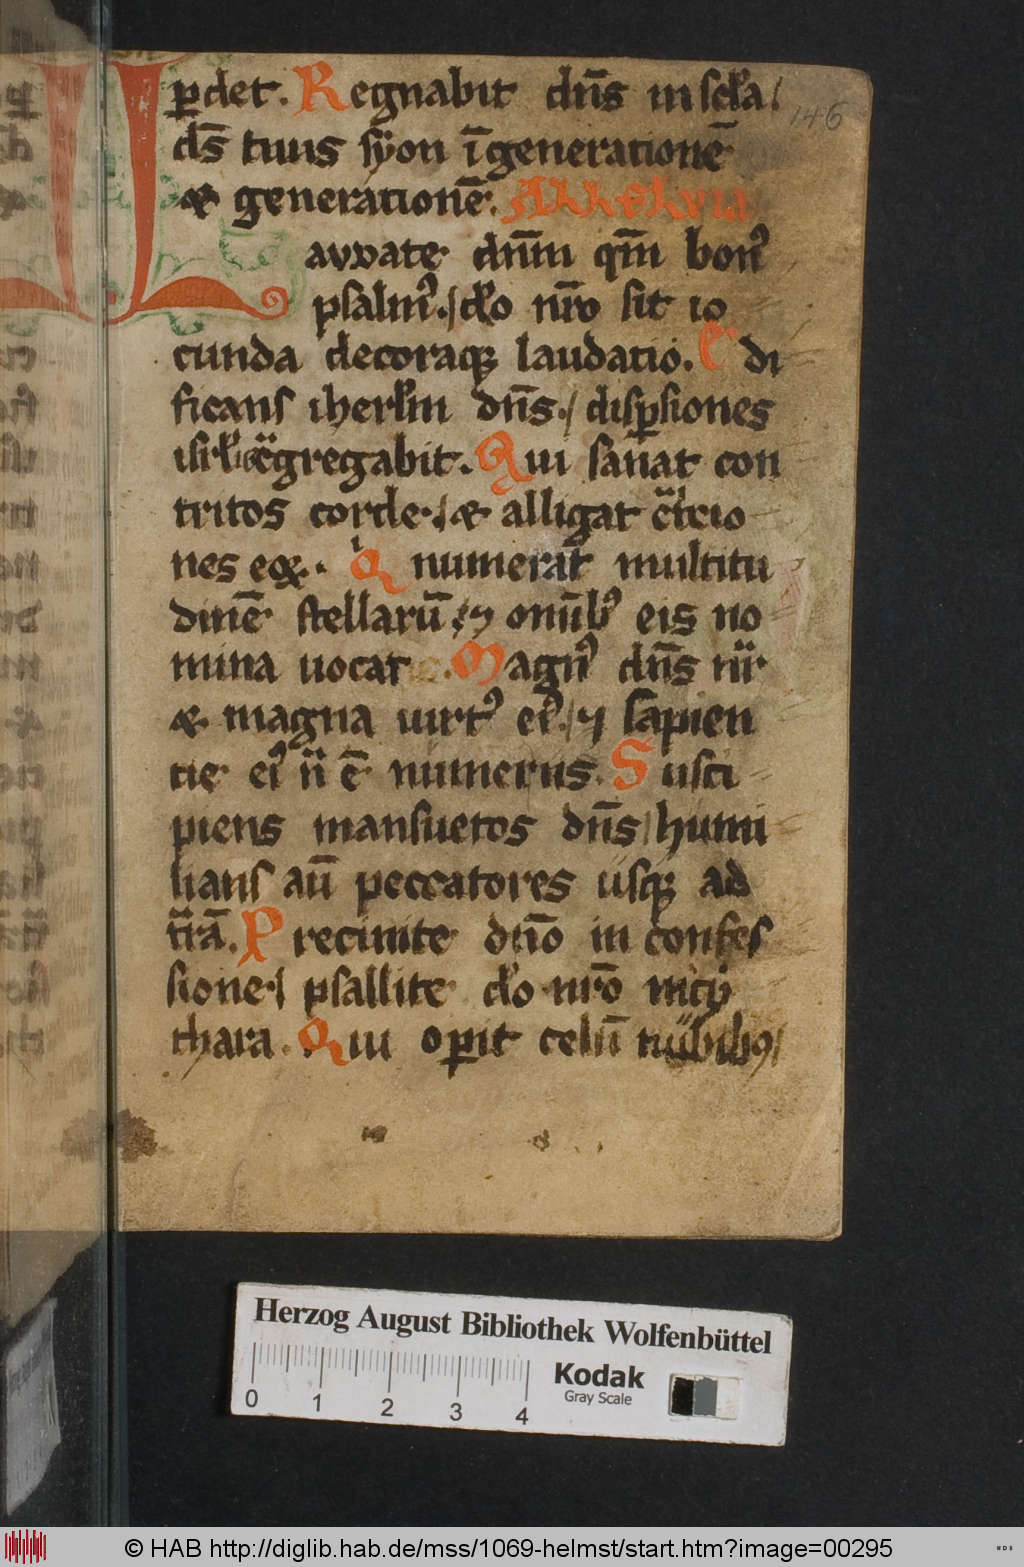 ꝑdet. Regnabit dn̄s in scl̄a /
146
ds̄ tuus syon ī generationē
& generationē. Allelvia
Lavdate dn̄m qm̄ bonꝰ
psalmꝰ./ do nr̄o sit io
cunda decoraqꝫ laudatio. Edi
ficans iherl̄m dn̄s./ disꝑsiones
isrl̄ cōgregabit. Qui sanat con
tritos corde./ & alligat
nes eoꝝ. Q numerat multitu
dinē stellarū ./ ⁊ omībꝰ eis no
mina uocat. Magnꝰ dn̄s nr̄
& magna uirtꝰ eiꝰ./ ⁊ sapien
tie eiꝰ n̄ ē numerus. Susci
piens mansuetos dn̄s / humi
lians aū peccatores usqꝫ ad
tr̄ā. Precinite dn̄o in confes
sione / psallite do nr̄o in cy
thara. Qui oꝑit celū nubibꝰ /
Herzog August Bibliothek Wolfenbüttel
0 1 2 3 4
Kodak
Gray Scale
© HAB http://diglib.hab.de/mss/1069-helmst/start.htm?image=00295